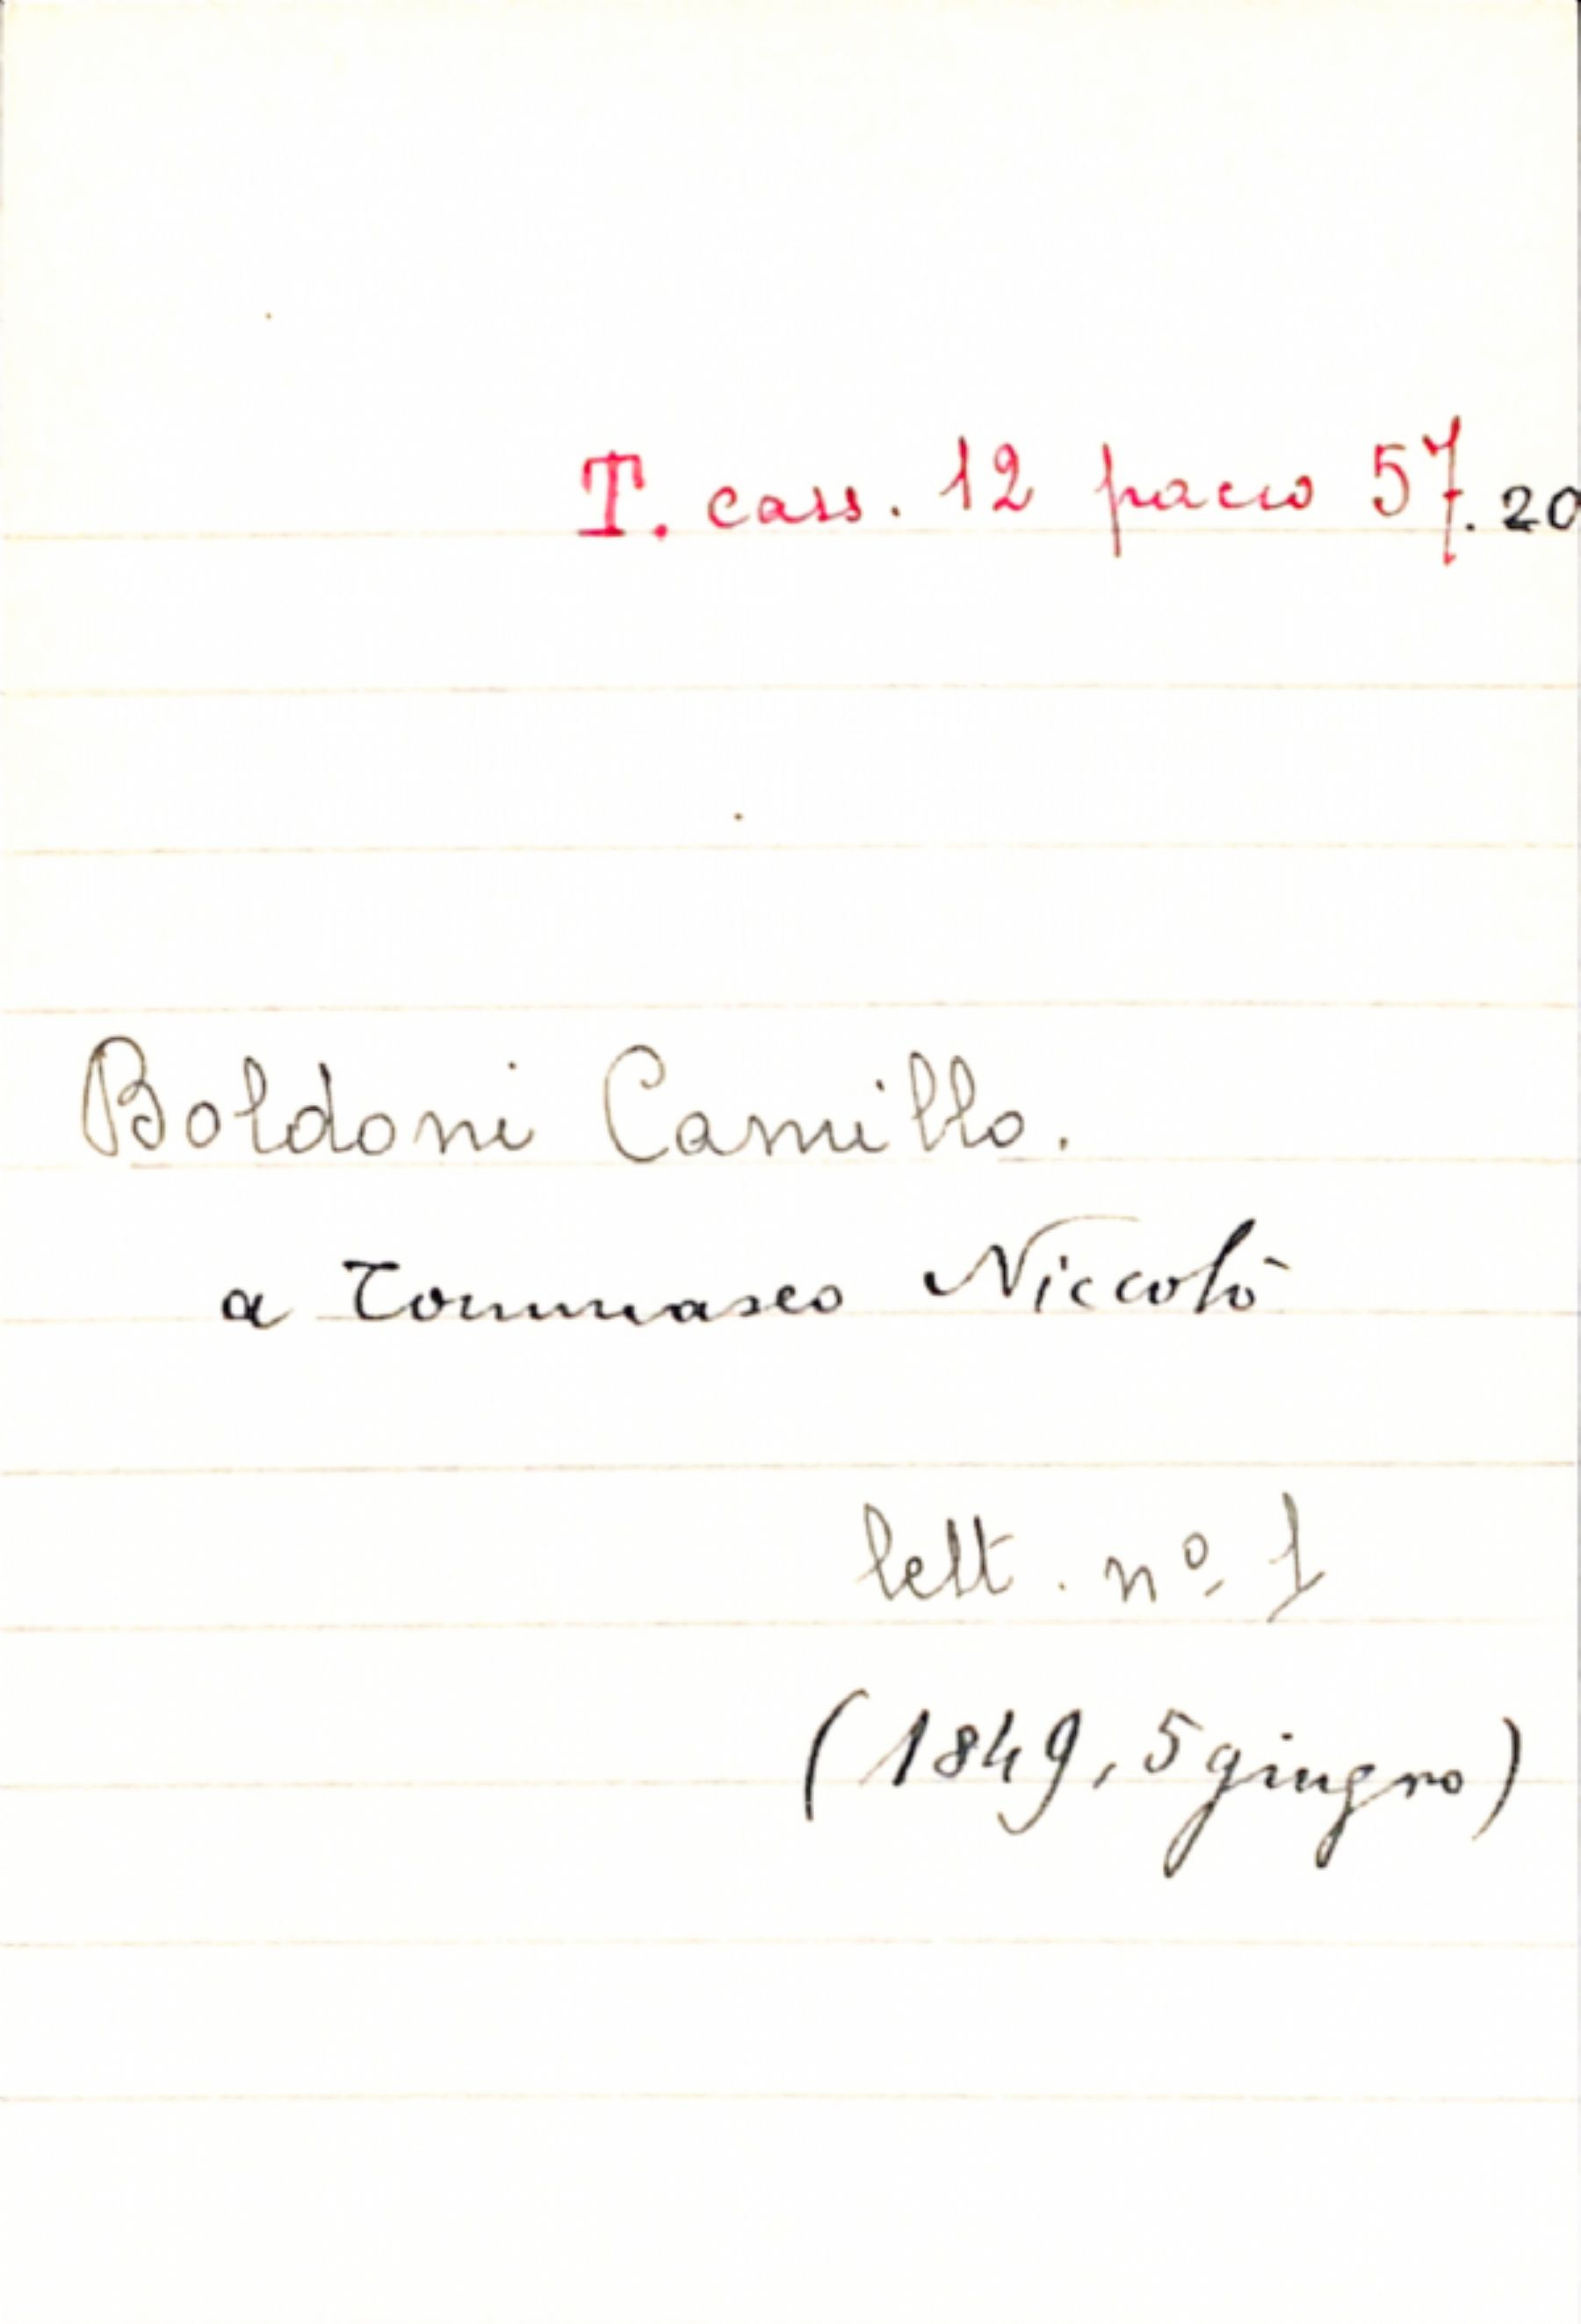 T. cass. 12 pacco 57.20
Boldoni Camillo.
a Tommaseo Niccolò
lett. nº 1
(1849, 5 giugno)